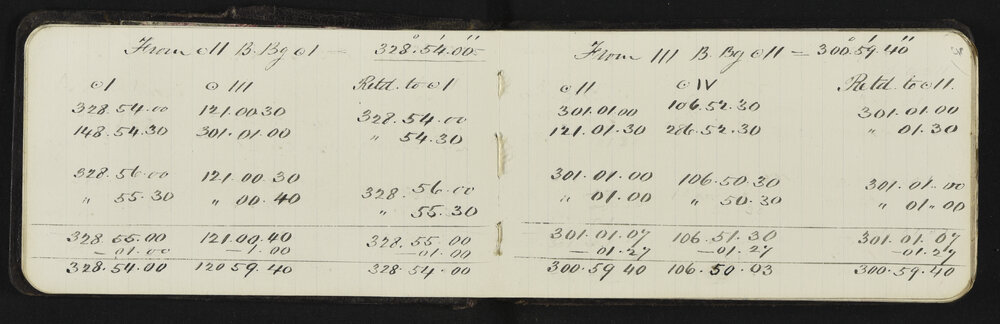 From ⊙II B. Bg ⊙I = 328° 54' 00"
⊙I ⊙III Retd. to ⊙I
328. 54. 00 121. 00. 30 328. 54. 00
148. 54. 30 301. 01. 00 " 54. 30
328. 56. 00 121. 00. 30 328. 56. 00
" 55. 30 " 00. 40 " 55. 30
328. 55. 00 121. 00. 40 328. 55. 00
— 01. 00 — 1. 00 — 01. 00
328. 54. 00 120 59. 40 328. 54. 00
From III B. Bg ⊙II = 300° 59' 40"
⊙II ⊙IV Retd. to ⊙II.
301. 01 00 106. 52. 30 301. 01. 00
121. 01. 30 286. 52. 30 " 01. 30
301. 01. 00 106. 50. 30 301. 01. 00
" 01. 00 " 50. 30 " 01. 00
301. 01. 07 106. 51. 30 301. 01. 07
— 01. 27 — 01. 27 — 01. 27
300. 59 40 106. 50. 03 300. 59. 40